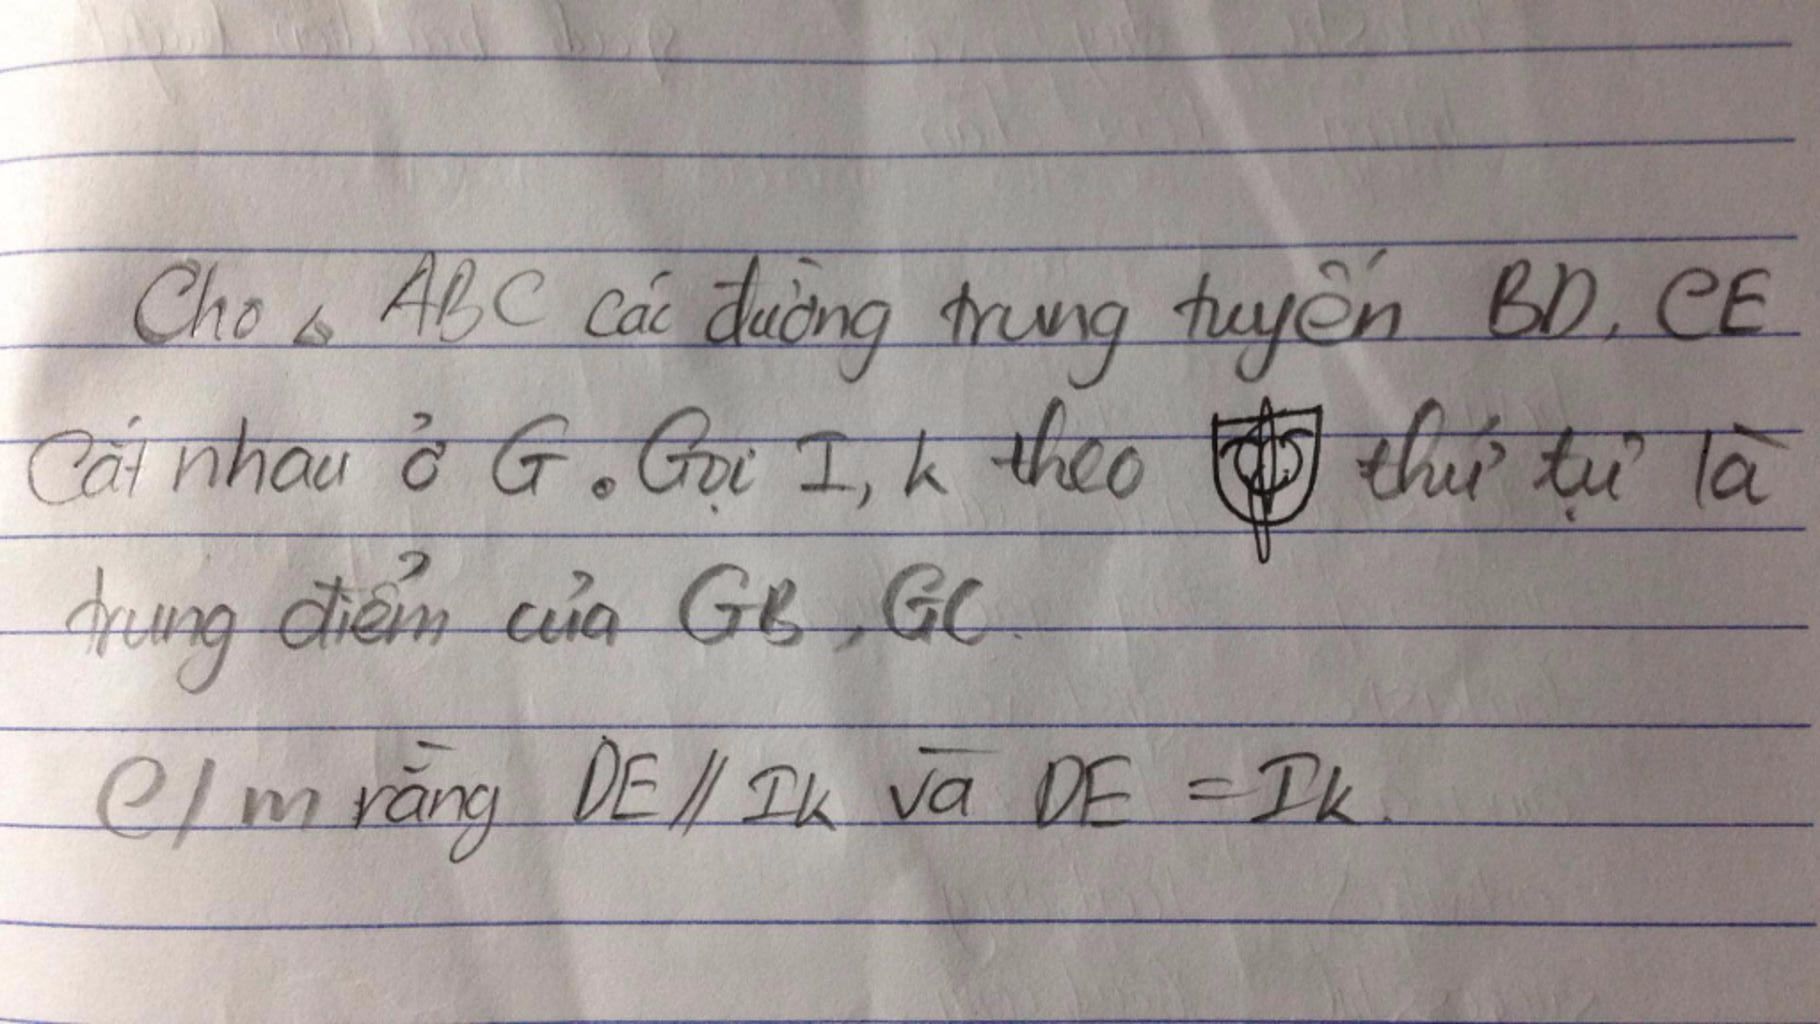 Cho △ ABC các đường trung tuyến BD, CE
cắt nhau ở G. Gọi I, k theo thứ tự là
trung điểm của GB, GC.
C/m rằng DE // Ik và DE = Ik.